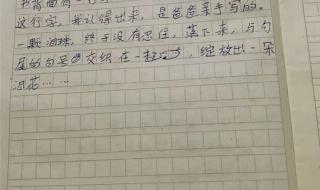 背面有一行
这行字，我认得出来，是爸爸亲手写的。
一颗泪珠，终于没有忍住，落下来，与句
尾的句号交织在一起，绽放出一朵
泪花……